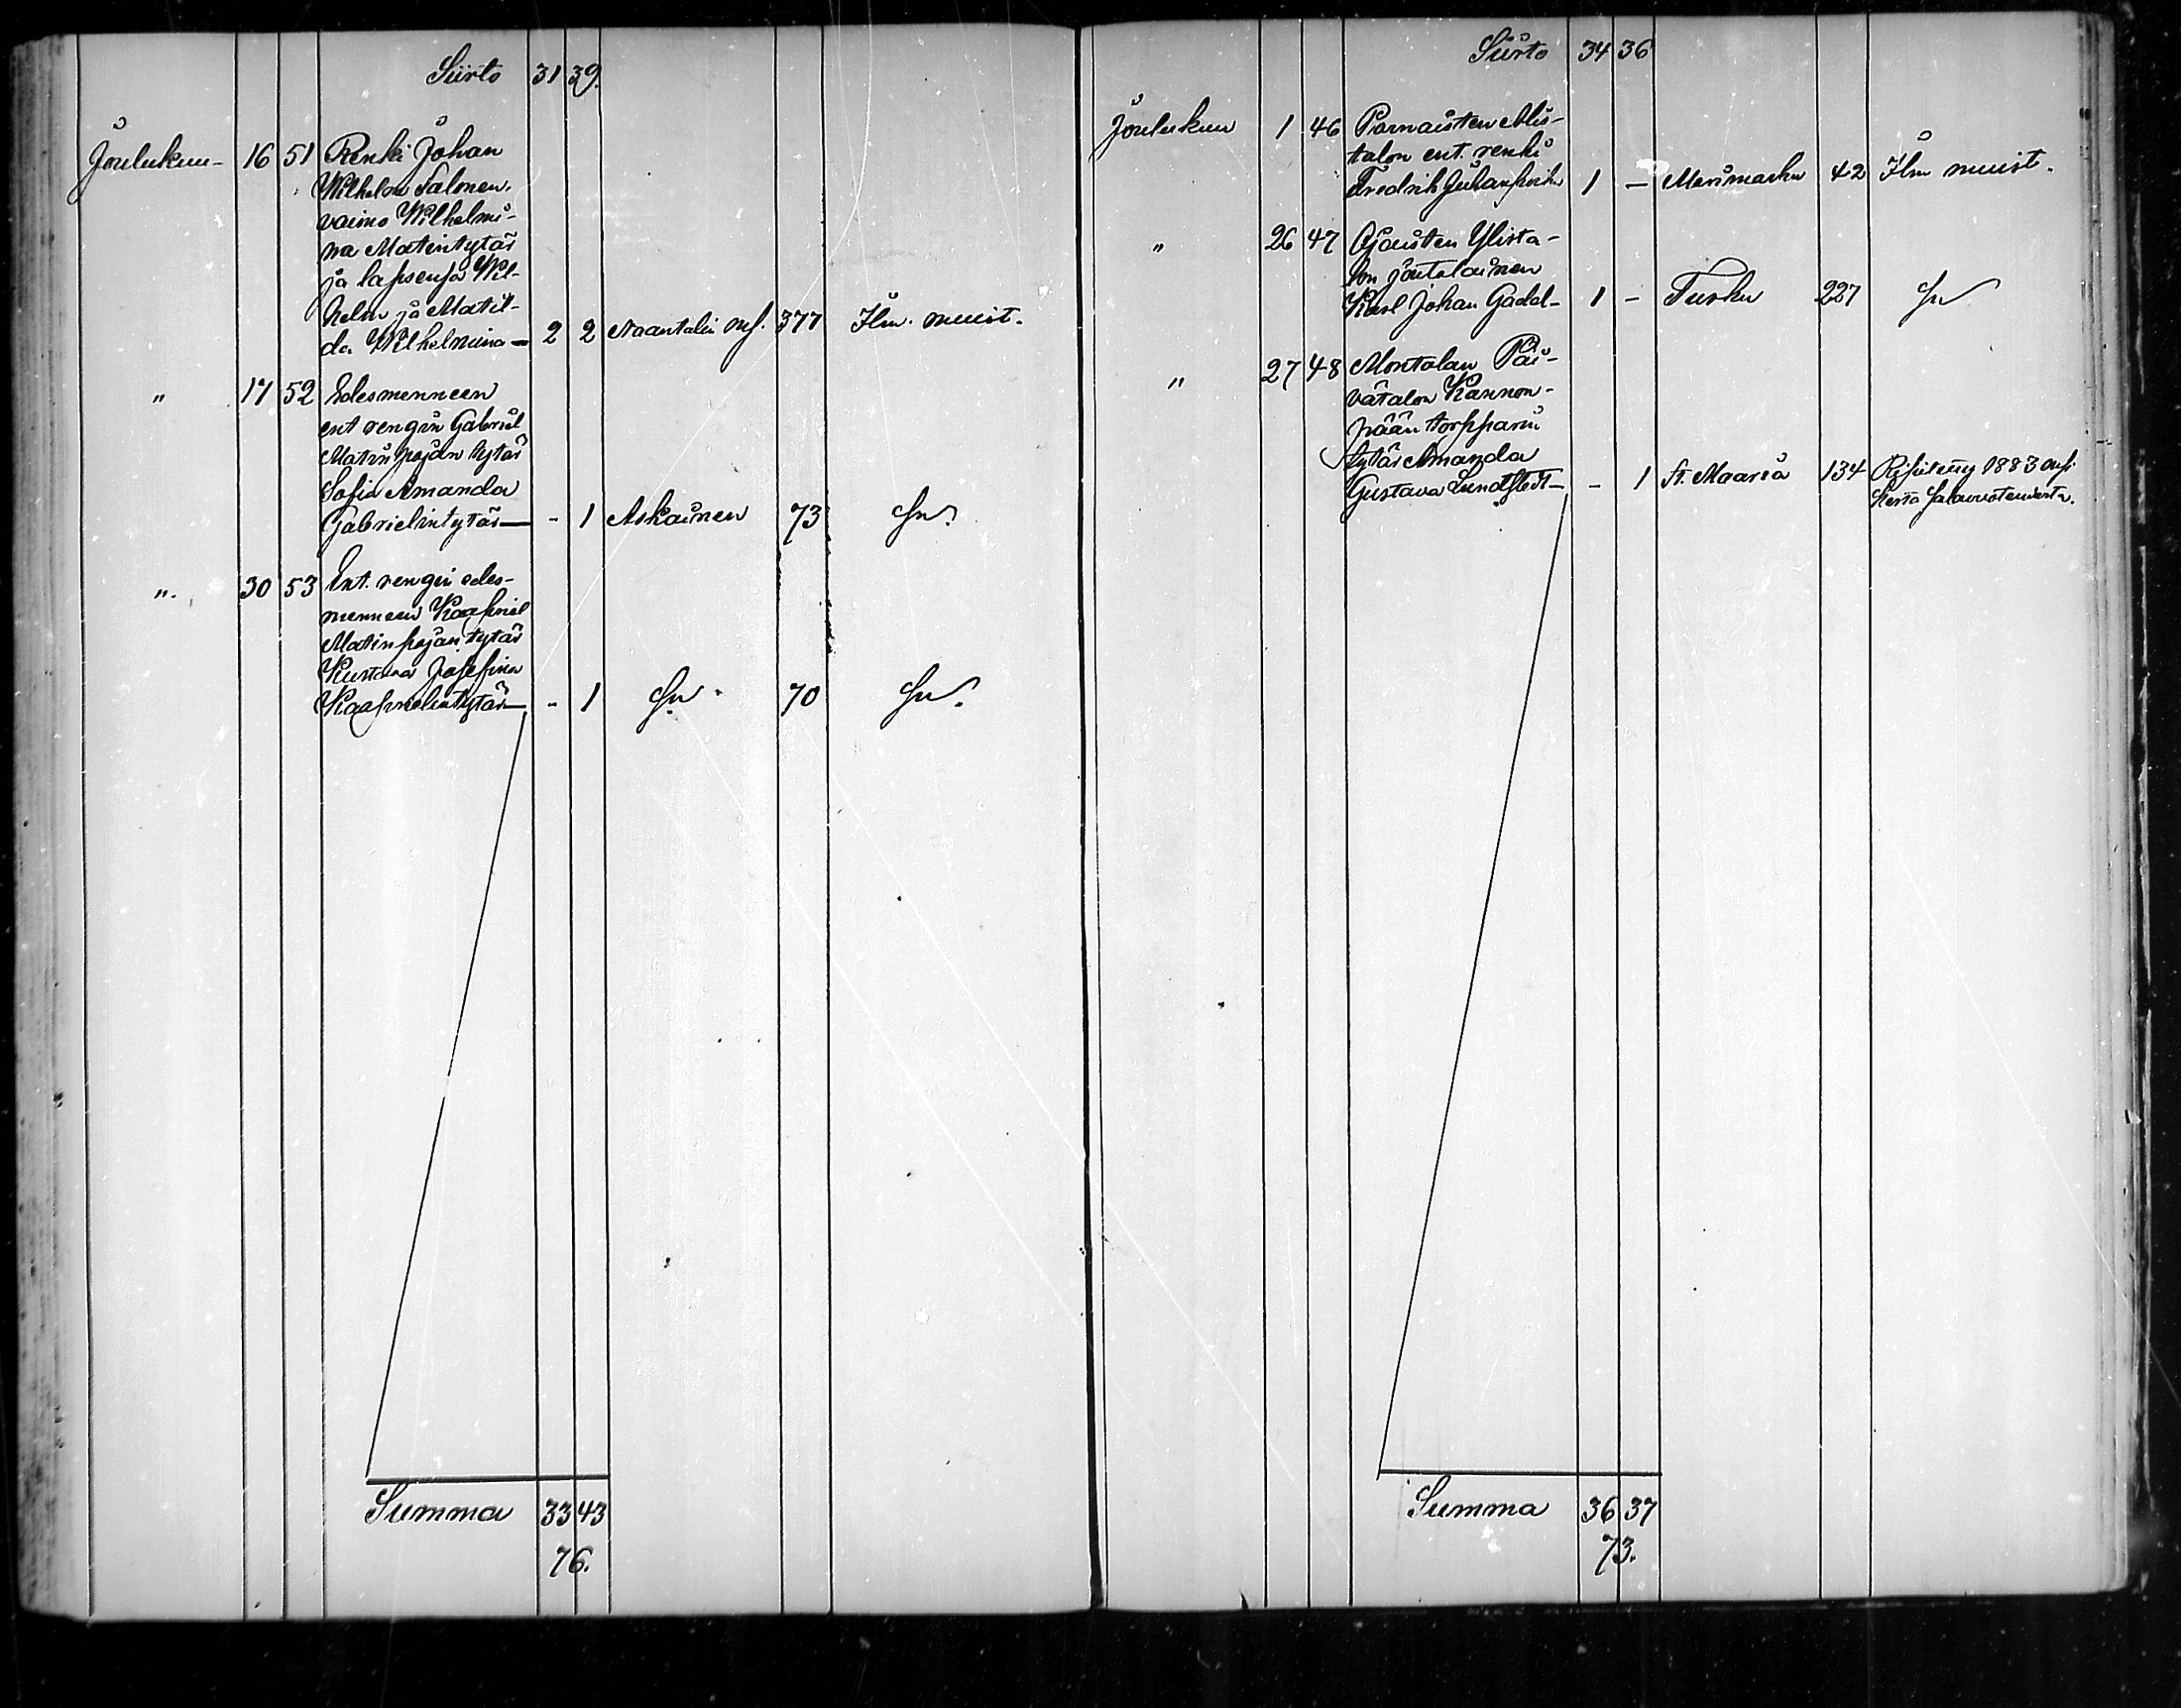 Siirto 31 39.
Joulukuu- 16 51 Renki Johan
Wilhelm Salonen,
vaimo Wilhelmi-
na Matintytär
ja lapsensa Wil-
helm ja Matil-
da Wilhelmina — 2 2 Naantalin ms. 377 Ilm. muist.
" 17 52 Edesmenneen
ent rengin Gabriel
Matinpojan tytär
Sofia Amanda
Gabrielintytär — - 1 Askainen 73 Sn.
". 30 53 Ent. rengin edes-
menneen Kaapriel
Matinpojan tytär
Kustava Josefina
Kaaprielintytär — - 1 Sn. 70 Sn.
Summa 33 43
76.
Siirto 34 36
Joulukuu 1 46 Parnaisten Alis-
talon ent. renki
Fredrik Juhanpoika 1 — Merimasku 42 Ilm muist.
" 26 47 Ojaisten Ylista-
lon
Karl Johan Gadd- 1 - Turku 227 Sn
" 27 48 Montolan Päi-
vätalon Kannon-
pään torpparin
tytär Amanda
Gustava Lundstedt — - 1 St. Maaria 134 1883
Summa 36 37
73.